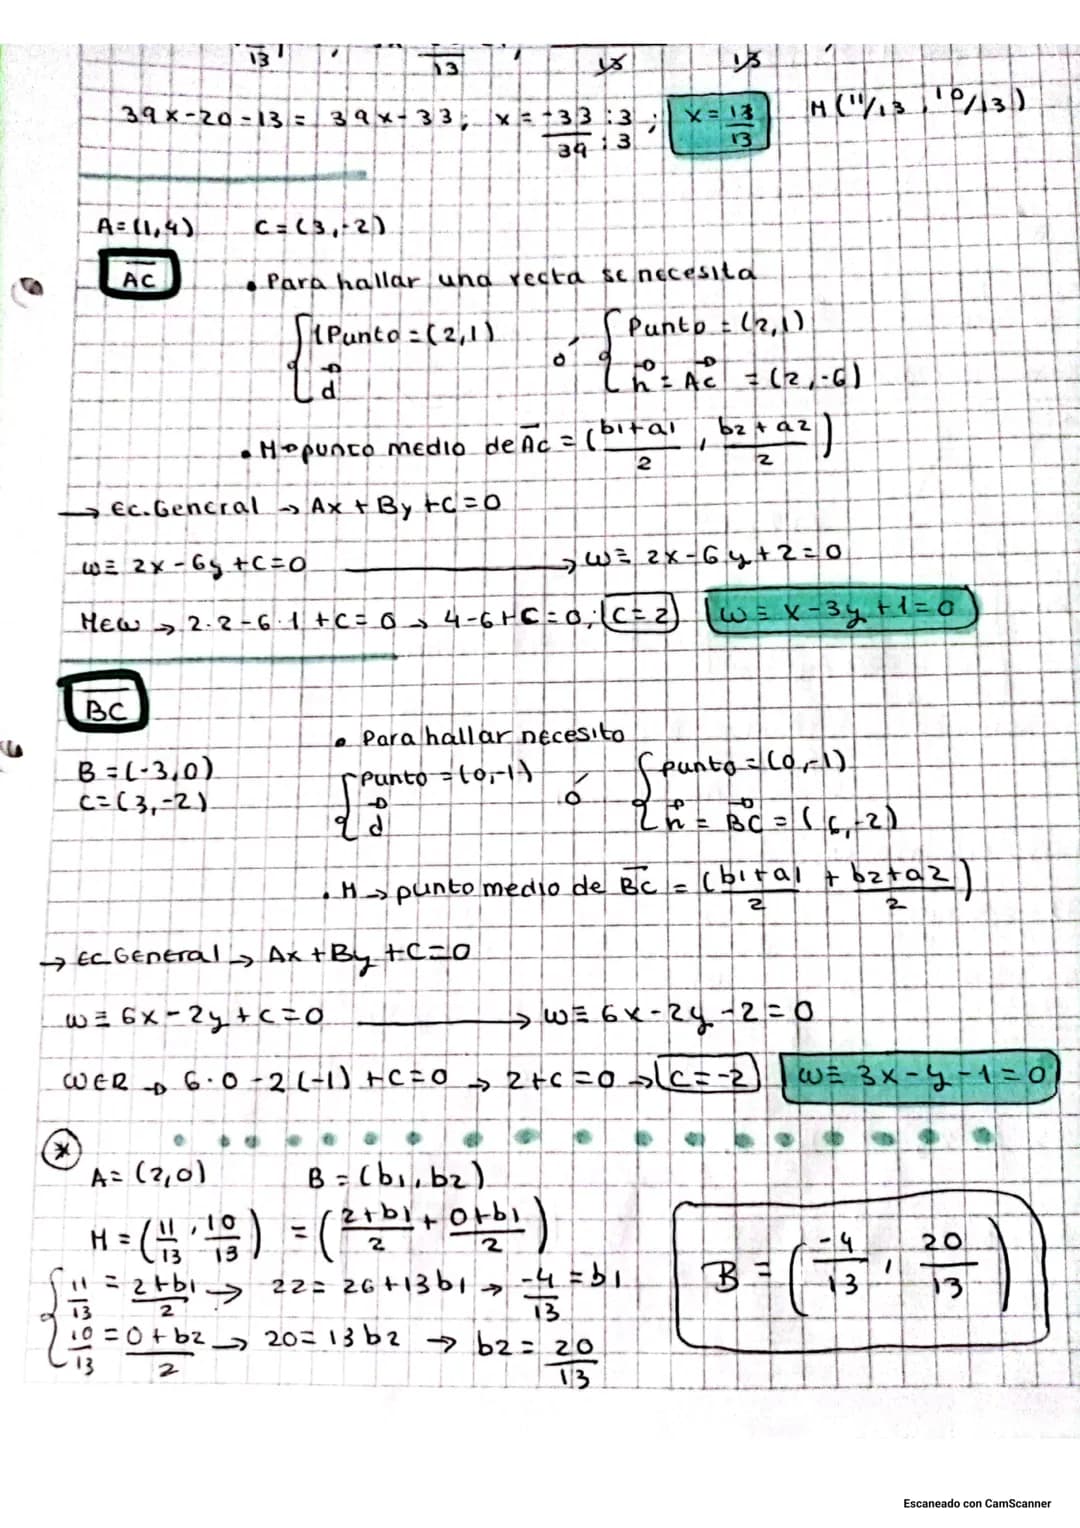 13 13 13 13
39x-20-13 = 39x-33; x = +33 :3 / 39 :3 ; x = 13/13 M(11/13, 10/13)
A=(1,4) C=(3,-2)
AC
• Para hallar una recta se necesita
{ 1Punto=(2,1) ó { Punto=(2,1)
d n = AC = (2,-6)
• M→punto medio de AC = (b1+a1/2, b2+a2/2)
→ Ec.General → Ax + By +C=0
w≡ 2x-6y+C=0 → w≡ 2x-6y+2=0
MEW → 2·2-6·1+C=0 → 4-6+C=0; C=2 w≡ x-3y+1=0
BC
• Para hallar necesito
B=(-3,0) { punto=(0,-1) ó { punto=(0,-1)
C=(3,-2) d n = BC = (6,-2)
• M→ punto medio de BC = (b1+a1/2 + b2+a2/2)
→ EC.GENEral → Ax+By+C=0
w≡ 6x-2y+C=0 → w≡ 6x-2y-2=0
WER → 6·0-2(-1)+C=0 → 2+C=0 → C=-2 w≡ 3x-y-1=0
* A=(2,0) B=(b1,b2)
M=(11/13, 10/13) = (2+b1/2 + 0+b1/2)
{ 11/13 = 2+b1/2 → 22=26+13b1 → -4/13=b1
10/13 = 0+b2/2 → 20=13b2 → b2=20/13
B=(-4/13, 20/13)
Escaneado con CamScanner